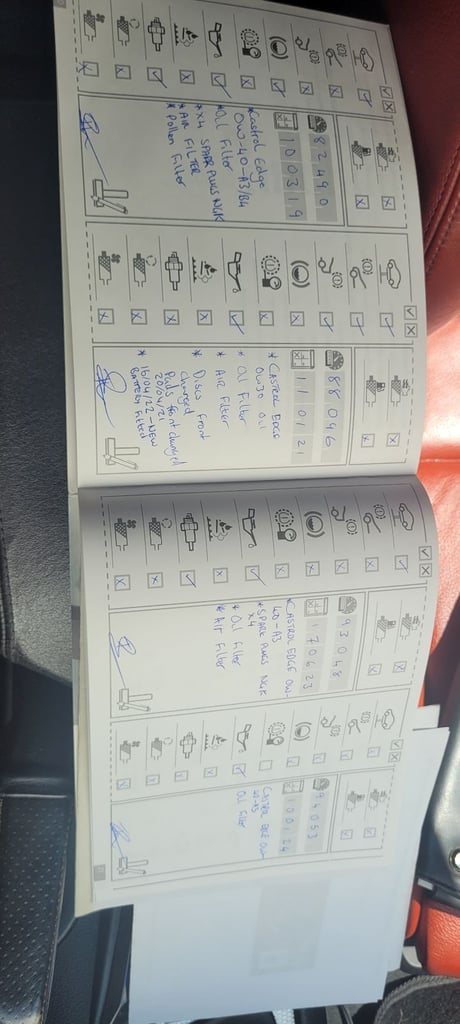 82490
100319
*Castrol Edge
0W-40-A3/B4
*Oil Filter
*x4 SPARK PLUGS NGK
*AIR FILTER
*Pollen Filter
88046
110121
* CASTROL EDGE
0W30 Oil
* Oil Filter
* AIR Filter
* Discs front
changed
Pads front changed
20/04/21
* 16/04/22 -NEW
BATTERY Fitted
93048
170623
*CASTROL EDGE 0W-
40-A3
*SPARK PLUGS NGK
x4
* Oil Filter
* Air Filter
94053
100124
CASTROL EDGE 0W-
40-A3
Oil Filter